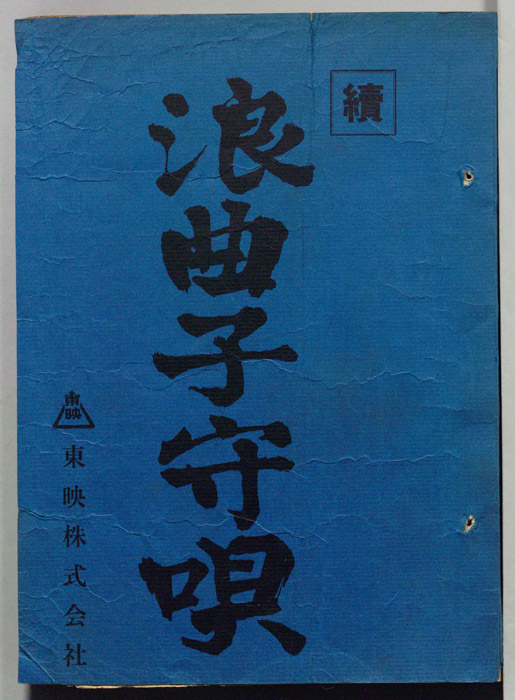 續
浪曲子守唄
東映
東映株式会社